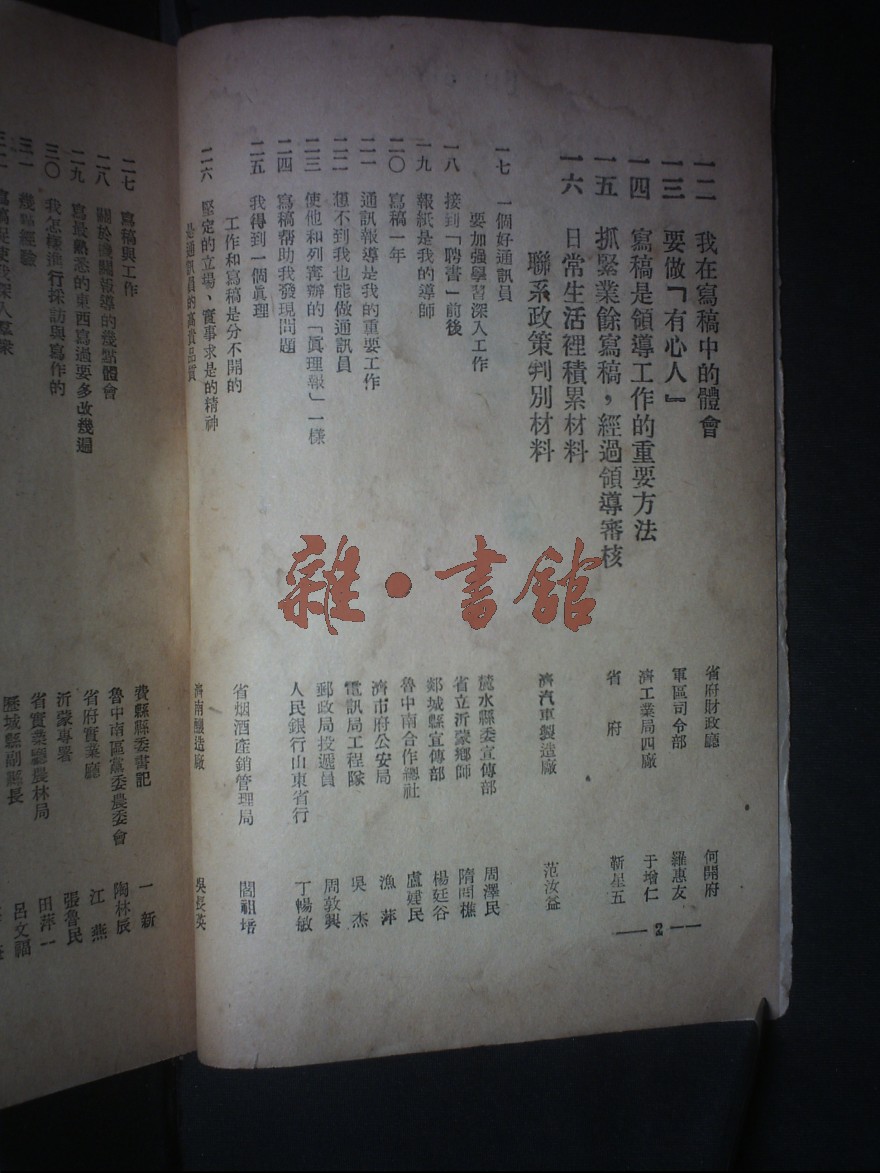 一二 我在寫稿中的體會 省府財政廳 何開府
一三 要做「有心人」 軍區司令部 羅惠友
一四 寫稿是領導工作的重要方法 濟工業局四廠 于增仁
一五 抓緊業餘寫稿，經過領導審核 省府 靳星五
一六 日常生活裡積累材料
聯系政策判別材料 濟汽車製造廠 范汝益
一七 一個好通訊員
要加强學習深入工作 麓水縣委宣傳部 周澤民
一八 接到「聘書」前後 省立沂蒙鄉師 隋同樵
一九 報紙是我的導師 郯城縣宣傳部 楊廷谷
二〇 寫稿一年 魯中南合作總社 盧建民
二一 通訊報導是我的重要工作 濟市府公安局 漁萍
二二 想不到我也能做通訊員 電訊局工程隊 吳杰
二三 使他和列寧辦的「眞理報」一樣 郵政局投遞員 周敦興
二四 寫稿帮助我發現問題 人民銀行山東省行 丁暢敏
二五 我得到一個眞理
工作和寫稿是分不開的 省烟酒產銷管理局 閻祖培
二六 堅定的立場、實事求是的精神
是通訊員的高貴品質 濟南釀造廠 吳長英
— 2 —
二七 寫稿與工作 費縣縣委書記 一新
二八 關於機關報導的幾點體會 魯中南區黨委農委會 陶林辰
二九 寫最熟悉的東西寫過要多改幾過 省府實業廳 江燕
三〇 我怎樣進行採訪與寫作的 沂蒙專署 張魯民
三一 幾點經驗 省實業廳農林局 田萍一
寫稿促使我深入羣衆 歷城縣副縣長 呂文福
雜·書舘